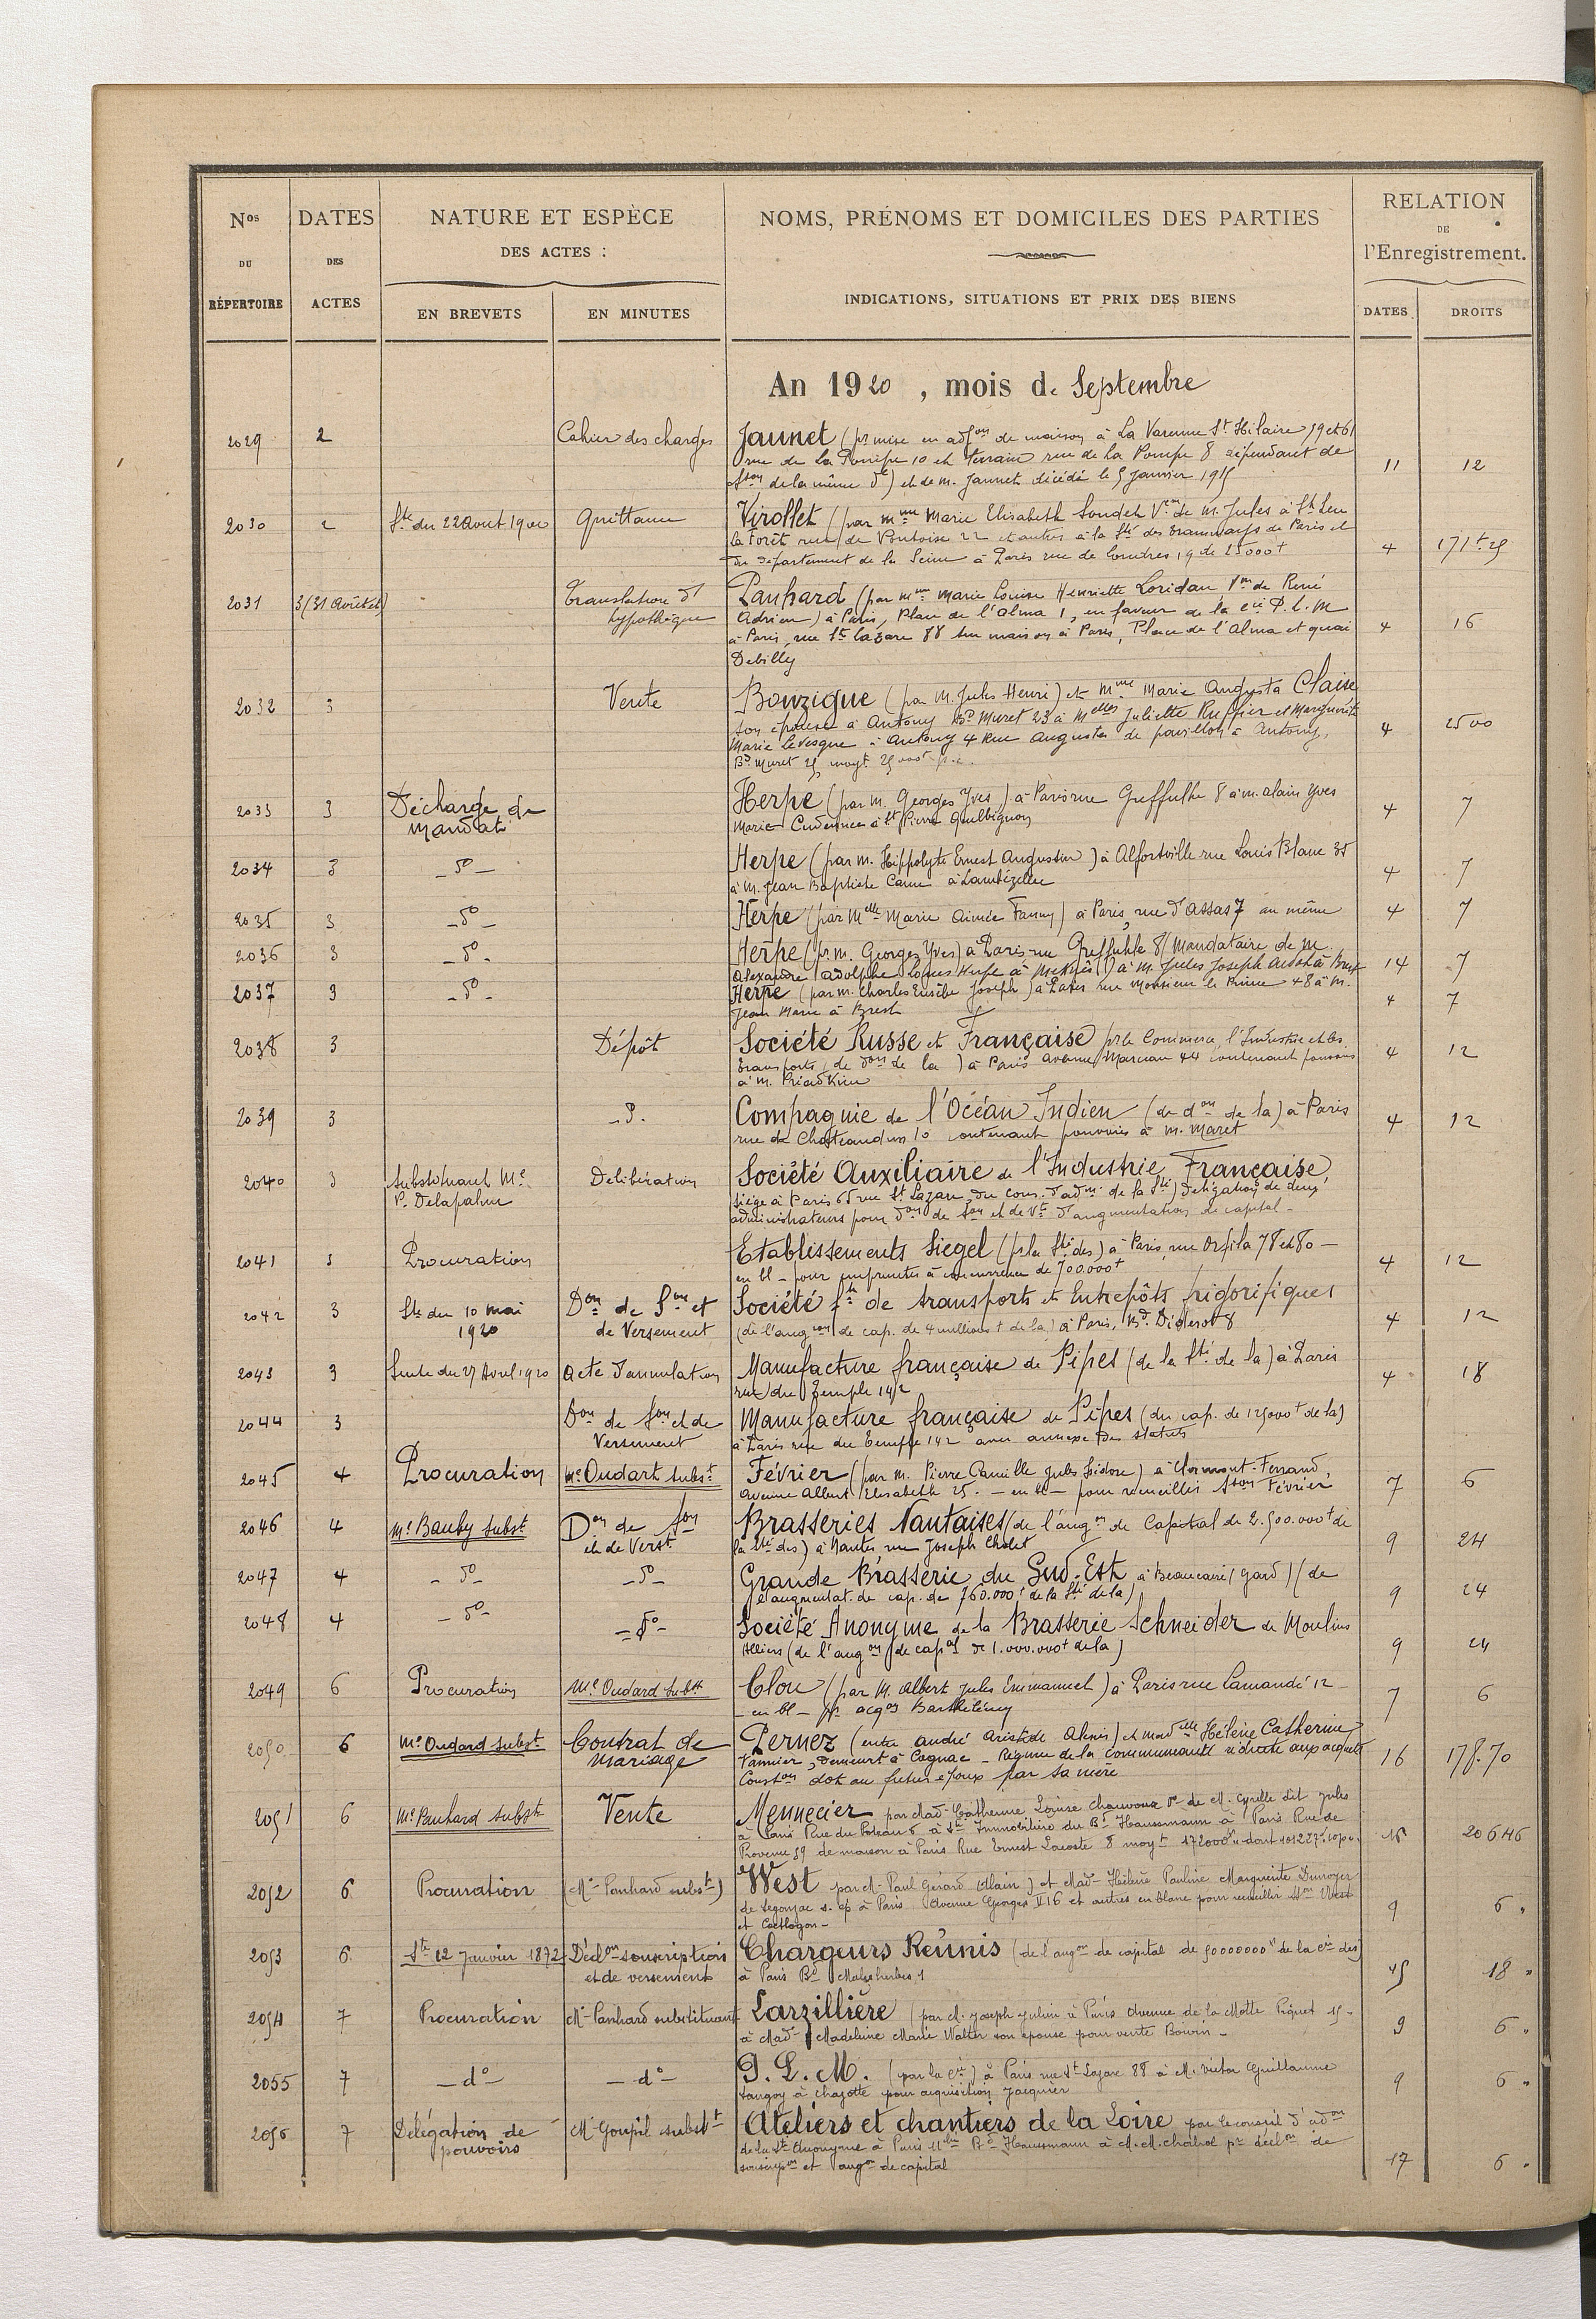 Nos DU RÉPERTOIRE
DATES DES ACTES
NATURE ET ESPÈCE DES ACTES :
EN BREVETS
EN MINUTES
NOMS, PRÉNOMS ET DOMICILES DES PARTIES
INDICATIONS, SITUATIONS ET PRIX DES BIENS
RELATION DE l'Enregistrement.
DATES
DROITS
An 1920, mois de Septembre
2029 2 Cahier des charges Jaunet (pr mise en adjon de maison à La Varenne St Hilaire 59 et 61
rue de La Pompe 10 et terrain rue de la Pompe 8 dépendant de
son de la même de) et de m. Jaunet décédé le 5 Janvier 1915 11 12
2030 2 Ste du 22 Aout 1900 Quittance Virollet (par mme Marie Elisabeth Soudeh Ve de m. Jules à St Leu
la Forêt rue de Pontoise 22 et autres à la Sté des tramways de Paris et
du département de la Seine à Paris rue de Londres 19 de 25000f 4 171f.25
2031 3 (31 Août et) Translation d'hypothèque Panhard (par mme Marie Louise Henriette Loridan Ve de René
Adrien) à Paris, Place de l'Alma 1, en faveur de la Cie P.L.M
à Paris, rue St Lazare 88 sur maison à Paris, Place de l'Alma et quai
Debilly 4 16
2032 3 Vente Bouzigue (par M. Jules Henri) et mme Marie Augusta Claise
son épouse à Antony Bd Muret 23 à Melles Juliette Ruffier et Marguerite
Marie Levesque à Antony 4 Rue Augusta de pavillon à Antony,
Bd Muret 25 moyt 25000f p.c. 4 2500
2033 3 Décharge de mandat Herpe (par m. Georges Yves) à Paris rue Greffulhe 8 à m. Alain Yves
Marie à St Pierre Quilbignon 4 7
2034 3 _ do _ Herpe (par m. Hippolyte Ernest Augustin) à Alfortville rue Louis Blanc 35
à m. Jean Baptiste à Lambézellec 4 7
2035 3 _ do _ Herpe (par Melle Marie Aimée Fanny) à Paris, rue d'Assas 7 au même 4 7
2036 3 _ do _ Herpe (pr m. Georges Yves) à Paris rue Greffulhe 8 (Mandataire de m.
Alexandre Adolphe Louis Herpe à) à m. Jules Joseph à Brest 14 7
2037 3 _ do _ Herpe (par m. Charles Eusèbe Joseph) à Paris rue Monsieur le Prince 48 à m.
Jean Marie à Brest 4 7
2038 3 Dépôt Société Russe et Française pr le Commerce, l'Industrie et les
transports (de don de la) à Paris Avenue Marceau 44 contenant pouvoirs
à m. Priadkine 4 12
2039 3 _ do. Compagnie de l'Océan Indien (de don de la) à Paris
rue de Chateaudun 10 contenant pouvoirs à m. Maret 4 12
2040 3 Substituant Me P. Delapalme Délibération Société Auxiliaire de l'Industrie Française
siège à Paris 65 rue St Lazare, du cons. d'adm. de la Sté) délégation de deux
administrateurs pour don de son et de vt d'augmentation de capital -
2041 3 Procuration Etablissements Siegel (pr la Sté des) à Paris, rue Orfila 78 et 80 _
en bl - pour emprunter à concurrence de 700.000f 4 12
2042 3 Ste du 10 mai 1920 Don de Son et de Versement Société fse de transports et Entrepôts frigorifiques
(de l'augon de cap. de 4 millions f de la) à Paris, Bd. Diderot 8 4 12
2043 3 Suite du 27 Avril 1920 Acte d'annulation Manufacture française de Pipes (de la Sté de la) à Paris
rue du Temple 142 4 18
2044 3 Don de Son et de Versement Manufacture française de Pipes (du cap. de 125000f de la)
à Paris rue du Temple 142 avec annexe des statuts
2045 4 Procuration Me Oudart subst Février (par m. Pierre Camille Jules Isidore) à Clermont-Ferrand,
Avenue Albert Elisabeth 25. - en bl - pour recueillir son Février 7 6
2046 4 Me Bauby subst Don de Son et de Verst Brasseries Nantaises (de l'augon de Capital de 2.500.000f de
la Sté des) à Nantes rue Joseph Cholet 9 24
2047 4 _ do _ _ do _ Grande Brasserie du Sud-Est à Beaucaire (Gard) (de
l'augmentat. de cap. de 760.000f de la Sté de la) 9 24
2048 4 _ do _ _ do _ Société Anonyme de la Brasserie Schneider de Moulins
Alliers (de l'augon de capal de 1.000.000f de la) 9 24
2049 6 Procuration Me Oudard subst Clou (par M. Albert Jules Emmanuel) à Paris rue Lamandé 12 _
_ en bl _ pr acqon Barthélémy 7 6
2050 6 Me Oudard subst Contrat de mariage Pernez (entre André Aristide Alexis) et madelle Hélène Catherine
Vannier, demeurt à Cognac _ Régime de la communauté réduite aux acquets
Conston dot au futur époux par sa mère 16 178.70
2051 6 Me Panhard subst Vente Mennecier par Made Catherine Louise Chauvoux Ve de M. Cyrille dit Jules
à Paris Rue du Poteau 6 à Sté Immobilière du Bd Haussmann à Paris Rue de
Provence 59 de maison à Paris Rue Ernest Lacoste 8 moyt 172000f 15 20646
2052 6 Procuration (Me Panhard subst) West par M. Paul Gérard Alain) et Made Hélène Pauline Marguerite Dunoyer
de Segonzac s. ép à Paris Avenue Georges V 16 et autres en blanc pour recueillir son West
et Coetlogon - 9 6 "
2053 6 Ste 12 Janvier 1872 Déclon souscription et de versement Chargeurs Réunis (de l'augon de capital de 50000000f de la Cie des)
à Paris Bd Malesherbes, 1 15 18 "
2054 7 Procuration Me Panhard substituant Larzillière (par M. Joseph Julien à Paris Avenue de la Motte Piquet 15 -
à Made Madeleine Marie Walter son épouse pour vente Boivin - 9 6 "
2055 7 _ do _ _ do _ P. L. M. (par la Cie) à Paris rue St Lazare 88 à M. Victor Guillaume
Tangoy à Chazotte pour acquisition Jacquier 9 6 "
2056 7 Délégation de pouvoirs Me Goupil subst Ateliers et chantiers de la Loire par le conseil d'adon
de la Sté Anonyme à Paris 11 bis Bd Haussmann à M.M. Chabol pr déclon de
souscripon et augon de capital 17 6 "